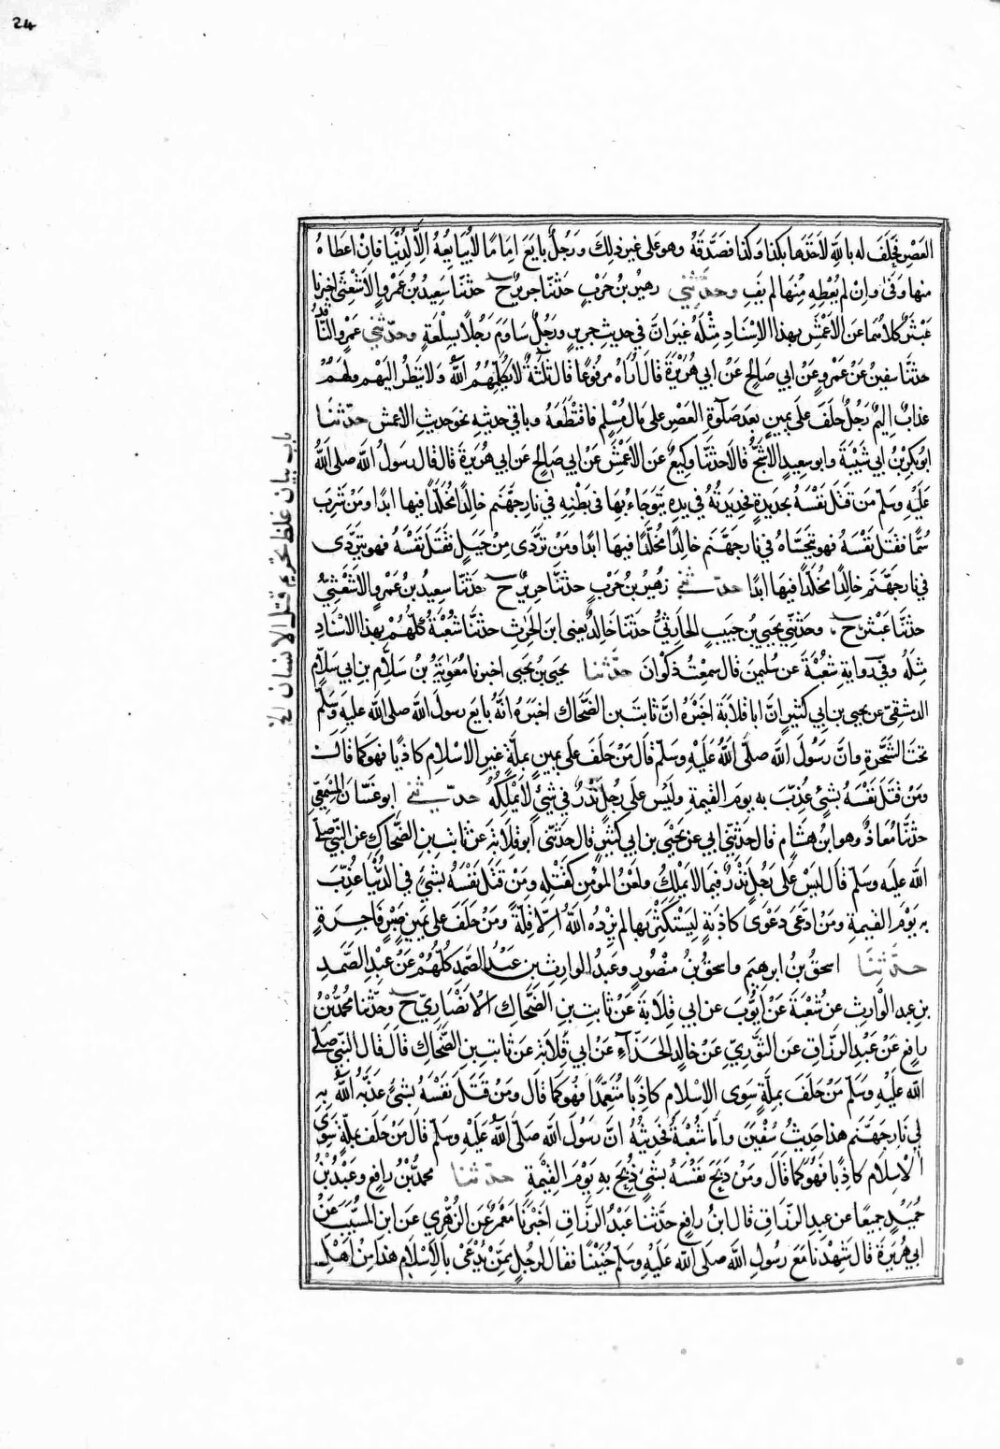 24
العصر فحلف له بالله لاخذها بكذا وكذا فصدقه وهو على غير ذلك ورجل بايع اماما لا يبايعه الا لدنيا فان اعطاه
منها وفى وان لم يعطه منها لم يف وحدثني زهير بن حرب حدثنا جرير ح حدثنا سعيد بن عمرو الاشعثي اخبرنا
عبثر كلاهما عن الاعمش بهذا الاسناد مثله غير ان في حديث جرير ورجل ساوم رجلا بسلعة وحدثني عمرو الناقد
حدثنا سفين عن عمرو عن ابي صالح عن ابي هريرة قال اراه مرفوعا قال ثلثة لا يكلمهم الله ولا ينظر اليهم ولهم
عذاب اليم رجل حلف على يمين بعد صلوة العصر على مال مسلم فاقتطعه وباقي حديثه نحو حديث الاعمش حدثنا
ابو بكر بن ابي شيبة وابو سعيد الاشج قالا حدثنا وكيع عن الاعمش عن ابي صالح عن ابي هريرة قال قال رسول الله صلى الله
عليه وسلم من قتل نفسه بحديدة فحديدته في يده يتوجاء بها في بطنه في نار جهنم خالدا مخلدا فيها ابدا ومن شرب
سما فقتل نفسه فهو يتحساه في نار جهنم خالدا مخلدا فيها ابدا ومن تردى من جبل فقتل نفسه فهو يتردى
في نار جهنم خالدا مخلدا فيها ابدا حدثني زهير بن حرب حدثنا جرير ح حدثنا سعيد بن عمرو الاشعثي
حدثنا عبثر ح وحدثني يحيى بن حبيب الحارثي حدثنا خالد يعني ابن الحرث حدثنا شعبة كلهم بهذا الاسناد
مثله وفي رواية شعبة عن سليمن قال سمعت ذكوان حدثنا يحيى بن يحيى اخبرنا معوية بن سلام بن ابي سلام
الدمشقي عن يحيى بن ابي كثير ان ابا قلابة اخبره ان ثابت بن الضحاك اخبره انه بايع رسول الله صلى الله عليه وسلم
تحت الشجرة وان رسول الله صلى الله عليه وسلم قال من حلف على يمين بملة غير الاسلام كاذبا فهو كما قال
ومن قتل نفسه بشئ عذب به يوم القيمة وليس على رجل نذر في شئ لا يملكه حدثني ابو غسان المسمعي
حدثنا معاذ وهو ابن هشام قال حدثني ابي عن يحيى بن ابي كثير قال حدثني ابو قلابة عن ثابت بن الضحاك عن النبي صلى
الله عليه وسلم قال ليس على رجل نذر فيما لا يملك ولعن المومن كقتله ومن قتل نفسه بشئ في الدنيا عذب
به يوم القيمة ومن ادعى دعوى كاذبة ليستكثر بها لم يزده الله الا قلة ومن حلف على يمين صبر فاجرة
حدثنا اسحق بن ابرهيم واسحق بن منصور وعبد الوارث بن عبد الصمد كلهم عن عبد الصمد
بن عبد الوارث عن شعبة عن ايوب عن ابي قلابة عن ثابت بن الضحاك الانصاري ح وحدثنا محمد بن
رافع عن عبد الرزاق عن الثوري عن خالد الحذاء عن ابي قلابة عن ثابت بن الضحاك قال قال النبي صلى
الله عليه وسلم من حلف بملة سوى الاسلام كاذبا متعمدا فهو كما قال ومن قتل نفسه بشئ عذبه الله به
في نار جهنم هذا حديث سفين واما شعبة فحديثه ان رسول الله صلى الله عليه وسلم قال من حلف بملة سوى
الاسلام كاذبا فهو كما قال ومن ذبح نفسه بشئ ذبح به يوم القيمة حدثنا محمد بن رافع وعبد بن
حميد جميعا عن عبد الرزاق قال ابن رافع حدثنا عبد الرزاق اخبرنا معمر عن الزهري عن ابن المسيب عن
ابي هريرة قال شهدنا مع رسول الله صلى الله عليه وسلم حنينا فقال لرجل ممن يدعى بالاسلام هذا من اهل
باب بيان غلظ تحريم قتل الانسان الخ